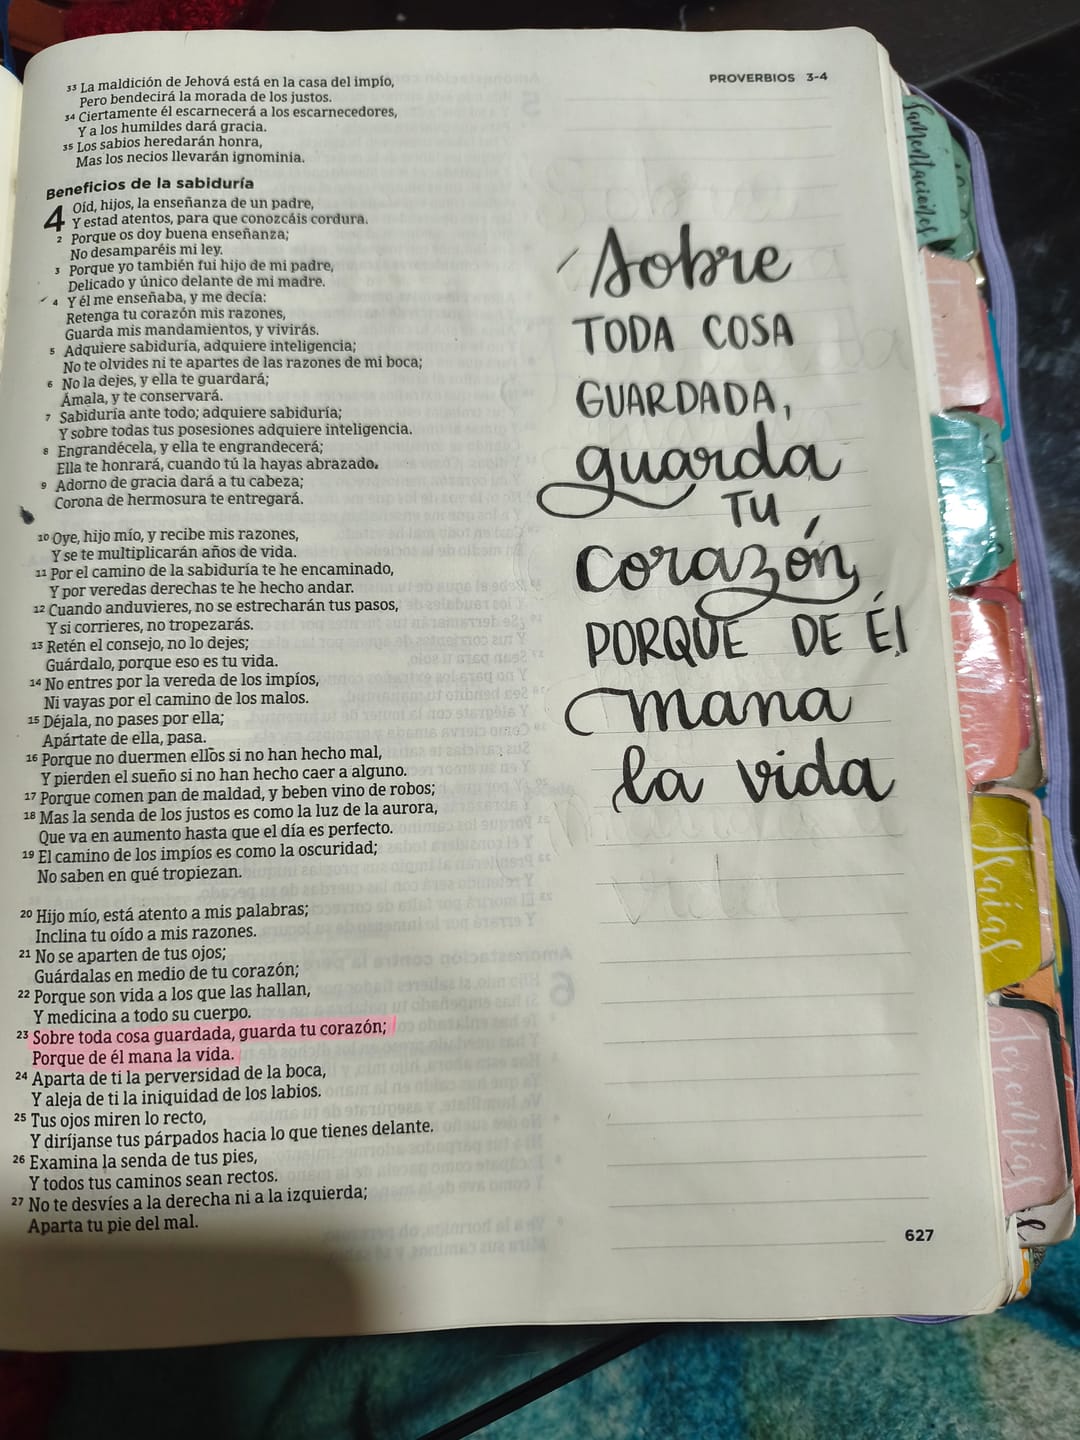 33 La maldición de Jehová está en la casa del impío,
Pero bendecirá la morada de los justos.
34 Ciertamente él escarnecerá a los escarnecedores,
Y a los humildes dará gracia.
35 Los sabios heredarán honra,
Mas los necios llevarán ignominia.
Beneficios de la sabiduría
4 Oíd, hijos, la enseñanza de un padre,
Y estad atentos, para que conozcáis cordura.
2 Porque os doy buena enseñanza;
No desamparéis mi ley.
3 Porque yo también fui hijo de mi padre,
Delicado y único delante de mi madre.
4 Y él me enseñaba, y me decía:
Retenga tu corazón mis razones,
Guarda mis mandamientos, y vivirás.
5 Adquiere sabiduría, adquiere inteligencia;
No te olvides ni te apartes de las razones de mi boca;
6 No la dejes, y ella te guardará;
Ámala, y te conservará.
7 Sabiduría ante todo; adquiere sabiduría;
Y sobre todas tus posesiones adquiere inteligencia.
8 Engrandécela, y ella te engrandecerá;
Ella te honrará, cuando tú la hayas abrazado.
9 Adorno de gracia dará a tu cabeza;
Corona de hermosura te entregará.
10 Oye, hijo mío, y recibe mis razones,
Y se te multiplicarán años de vida.
11 Por el camino de la sabiduría te he encaminado,
Y por veredas derechas te he hecho andar.
12 Cuando anduvieres, no se estrecharán tus pasos,
Y si corrieres, no tropezarás.
13 Retén el consejo, no lo dejes;
Guárdalo, porque eso es tu vida.
14 No entres por la vereda de los impíos,
Ni vayas por el camino de los malos.
15 Déjala, no pases por ella;
Apártate de ella, pasa.
16 Porque no duermen ellos si no han hecho mal,
Y pierden el sueño si no han hecho caer a alguno.
17 Porque comen pan de maldad, y beben vino de robos;
18 Mas la senda de los justos es como la luz de la aurora,
Que va en aumento hasta que el día es perfecto.
19 El camino de los impíos es como la oscuridad;
No saben en qué tropiezan.
20 Hijo mío, está atento a mis palabras;
Inclina tu oído a mis razones.
21 No se aparten de tus ojos;
Guárdalas en medio de tu corazón;
22 Porque son vida a los que las hallan,
Y medicina a todo su cuerpo.
23 Sobre toda cosa guardada, guarda tu corazón;
Porque de él mana la vida.
24 Aparta de ti la perversidad de la boca,
Y aleja de ti la iniquidad de los labios.
25 Tus ojos miren lo recto,
Y diríjanse tus párpados hacia lo que tienes delante.
26 Examina la senda de tus pies,
Y todos tus caminos sean rectos.
27 No te desvíes a la derecha ni a la izquierda;
Aparta tu pie del mal.
PROVERBIOS 3-4
Sobre
TODA COSA
GUARDADA,
guarda
TU
corazón,
PORQUE DE Él
mana
la vida
627
Lamentaciones
Isaías
Jeremías